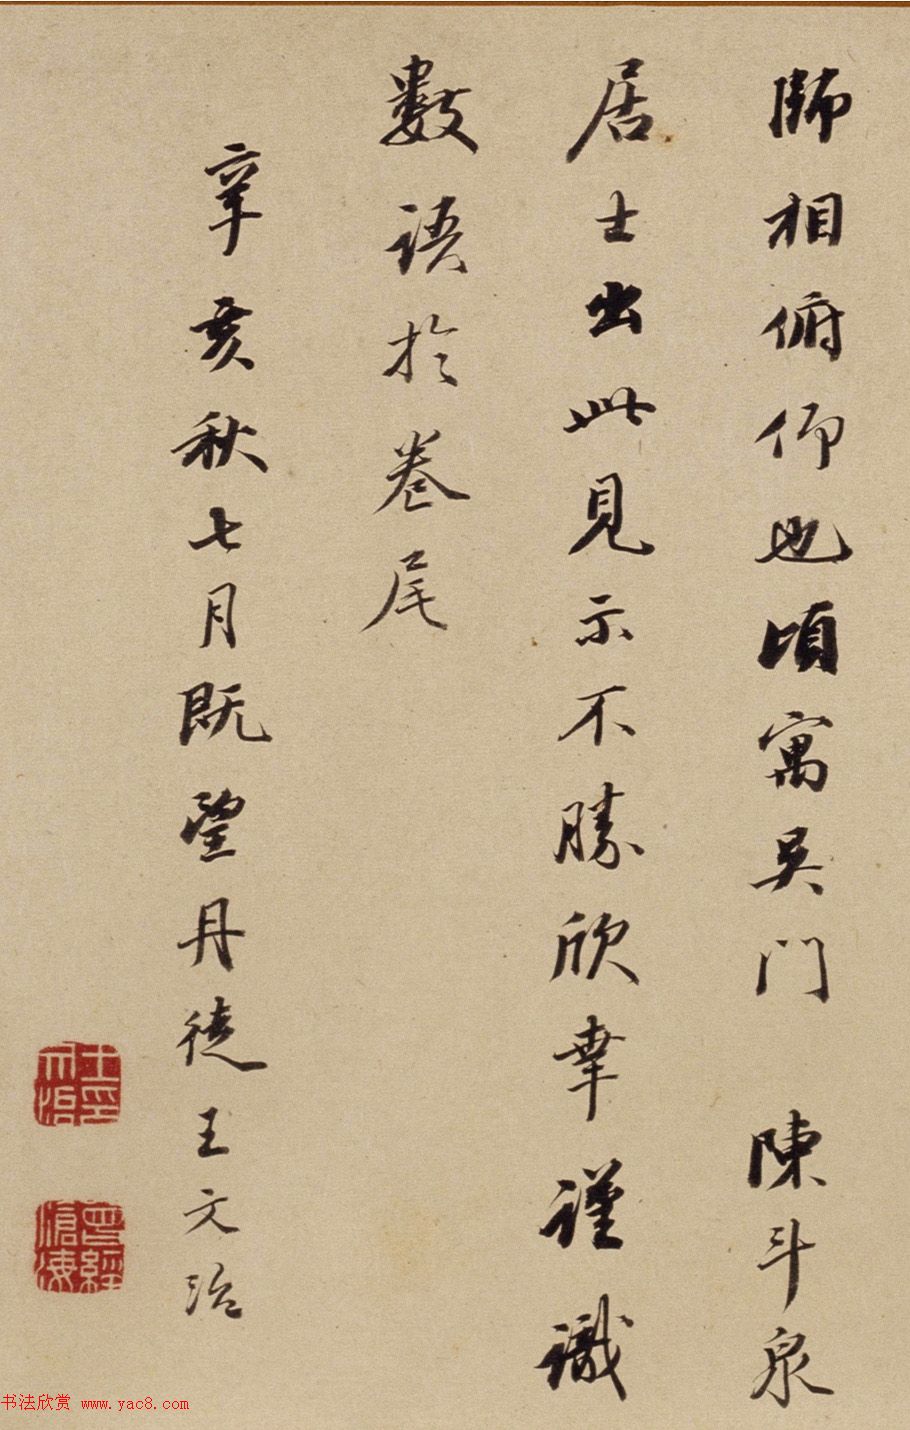 師相俯仰也頃寓吴門 陳斗泉
居士出此見示不勝欣幸謹識
數語於卷尾
辛亥秋七月既望丹徒王文治
王文治印
曾經滄海
书法欣赏 www.yac8.com